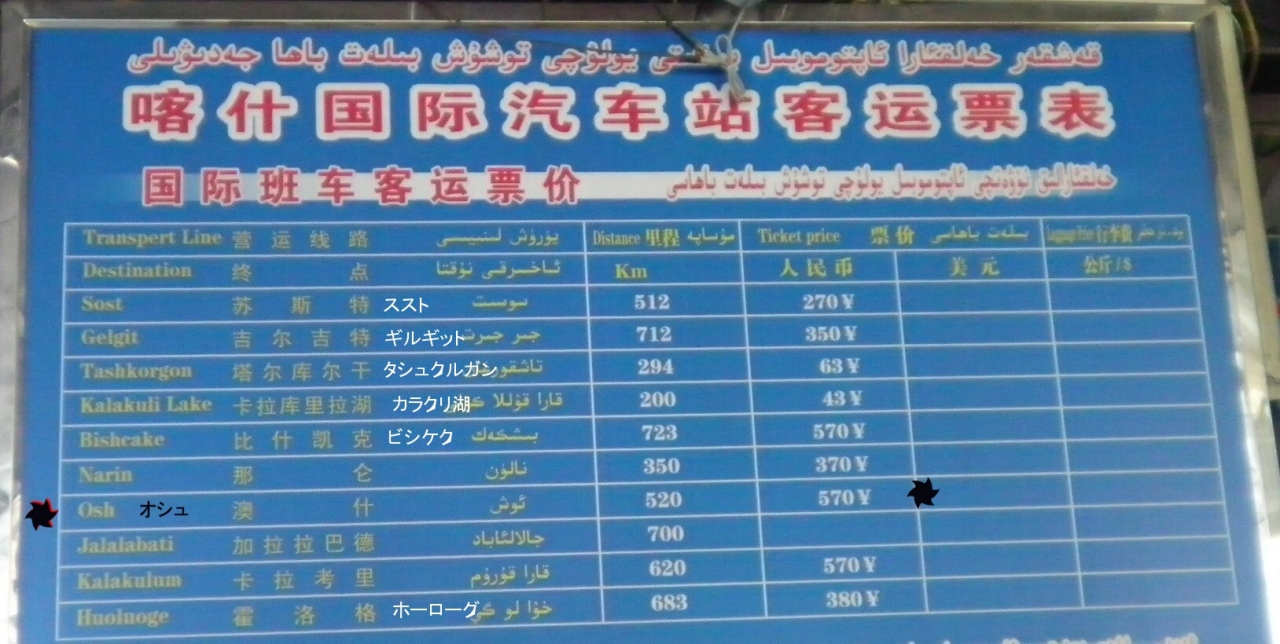 قەشقەر خەلقئارا ئاپتوموبىل يولۇچى توشۇش بىلەت باھا جەدىۋىلى
喀什国际汽车站客运票表
国际班车客运票价 خەلقئارالىق نۆۋەتچى ئاپتوموبىل يولۇچى توشۇش بىلەت باھاسى
Transpert Line 营运线路 يۈرۈش لىنىيىسى Distance 里程 مۇساپە Ticket price 票价 بىلەت باھاسى 行李费
Destination 终点 ئاخىرقى نۇقتا Km 人民币 美元 公斤/$
Sost 苏斯特 ススト سوست 512 270¥
Gelgit 吉尔吉特 ギルギット جىر جىرت 712 350¥
Tashkorgon 塔尔库尔干 タシュクルガン 294 63¥
Kalakuli Lake 卡拉库里拉湖 カラクリ湖 قارا قۇللا 200 43¥
Bishcake 比什凯克 ビシケク بىشكەك 723 570¥
Narin 那仑 نالۇن 350 370¥
Osh オシュ 澳什 ئوش 520 570¥
Jalalabati 加拉拉巴德 جالالئاباد 700
Kalakulum 卡拉考里 قارا قۇرۇم 620 570¥
Huoluoge 霍洛格 ホーローグ خۇا لو گې 683 380¥